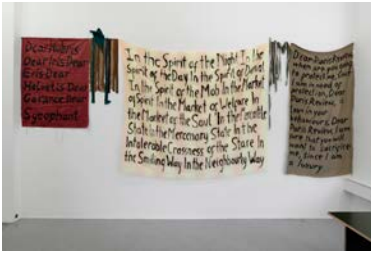 Dear Hubris
Dear Iris Dear
Eris Dear
Helmet is Dear
Garance Dear
Sycophant
In the Spirit of the Night In the
Spirit of the Day In the Spirit of Denial
In the Spirit of the Mob In the Market
of Spirit In the Market of Welfare In
the Market of the Soul In the Mercantile
State In the Mercenary State In the
Intolerable Crassness of the Stare In
the Smiling Way In the Neighbourly Way
Dear Doris Review
when are you going
to protect me, that
I am in need of
protection, Dear
Paris Review,
I am in your
Dear
Paris Review, I am
sure that you will
want to
me, since I am
a luxury.